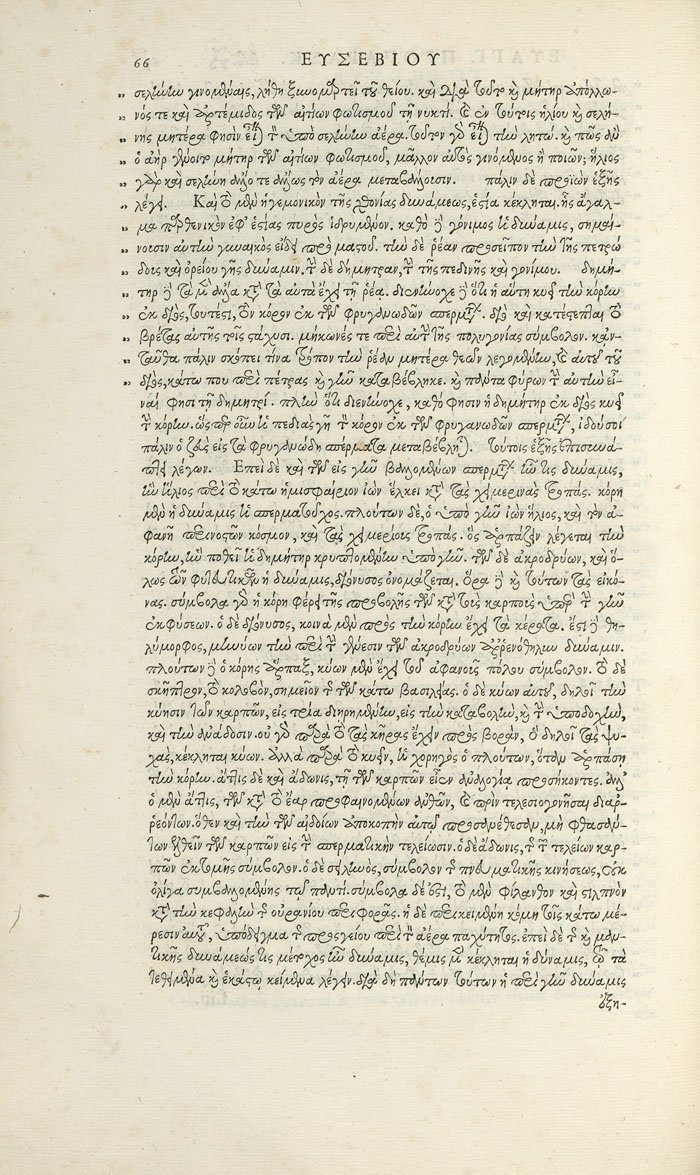 66 ΕΥΣΕΒΙΟΥ
σελήνην γινομέναις, λήθη ξυνομαρτεῖ τοῦ θείου. καὶ διὰ τοῦτο καὶ μήτηρ ἀπόλλω-
νός τε καὶ ἀρτέμιδος τῶν αἰτίων φωτισμοῦ τῇ νυκτί. Καὶ ἐν τούτοις ἡλίου καὶ σελή-
νης μητέρα φησὶν εἶναι τὸν ὑπὸ σελήνην ἀέρα. τοῦτον γὰρ εἶναι τὴν λητώ. καὶ πῶς ἂν
ὁ ἀὴρ γένοιτο μήτηρ τῶν αἰτίων φωτισμοῦ, μᾶλλον αὐτὸς γινόμενος ἢ ποιῶν; ἥλιος
γὰρ καὶ σελήνη ἄλλοτε ἄλλως τὸν ἀέρα μεταβάλλουσιν. πάλιν δὲ προϊὼν ἑξῆς
λέγει. Καὶ τὸ μὲν ἡγεμονικὸν τῆς χθονίας δυνάμεως, ἑστία κέκληται. ἧς ἄγαλ-
μα παρθενικὸν ἐφ' ἑστίας πυρὸς ἱδρυμένον. καθὸ δὲ γόνιμος ἡ δύναμις, σημαί-
νουσιν αὐτὴν γυναικὸς εἴδει προμάστου. τὴν δὲ ῥέαν προσεῖπον τὴν τῆς πετρώ
δους καὶ ὀρείου γῆς δύναμιν. τὴν δὲ δήμητραν, τὴν τῆς πεδινῆς καὶ γονίμου. δημή-
τηρ δὲ τὰ μὲν ἄλλα κατὰ τὰ αὐτὰ ἔχει τῇ ῥέᾳ. διενήνοχε δὲ ὅτι ἡ αὕτη κυεῖ τὴν κόρην
ἐκ διὸς, τουτέστι, τὸν κόρον ἐκ τῶν φρυγανωδῶν σπερμάτων. διὸ καὶ κατέστεπται τὸ
βρέτας αὐτῆς τοῖς στάχυσι. μήκωνές τε περὶ αὐτὴν τῆς πολυγονίας σύμβολον. κἀν-
ταῦθα πάλιν σκόπει τίνα τρόπον τὴν ῥέαν μητέρα θεῶν λεγομένην, καὶ αὐτοῦ τοῦ
διὸς, κάτω που περὶ πέτρας καὶ γῆν καταβέβληκε. καὶ πάντα φύρων τὴν αὐτὴν εἶ-
ναί φησι τῇ δήμητρι. πλὴν ὅτι διενήνοχε, καθό φησιν ἡ δημήτηρ ἐκ διὸς κυεῖ
τὴν κόρην. ὥσπερ οὖν ἡ πεδιὰς γῆ τὸν κόρον ἐκ τῶν φρυγανωδῶν σπερμάτων, ἰδοὺ οὖν
πάλιν ὁ ζεὺς εἰς τὰ φρυγανώδη σπέρματα μεταβέβληται. τούτοις ἑξῆς ἐπισυνά-
πτει λέγων. Ἐπεὶ δὲ καὶ τῶν εἰς γῆν βαλλομένων σπερμάτων ἦν τις δύναμις,
ἣν ἥλιος περὶ τὸ κάτω ἡμισφαίριον ἰὼν ἕλκει κατὰ τὰς χειμερινὰς τροπάς. κόρη
μὲν ἡ δύναμις ἡ σπερματοῦχος. πλούτων δὲ, ὁ ὑπὸ γῆν ἰὼν ἥλιος, καὶ τὸν ἀ-
φανῆ περινοστῶν κόσμον, κατὰ τὰς χειμερίους τροπάς. ὃς ἁρπάζειν λέγεται τὴν
κόρην, ἣν ποθεῖ ἡ δημήτηρ κρυπτομένην ὑπὸ γῆν. τῶν δὲ ἀκροδρύων, καὶ ὅ-
λως τῶν φυτευτικῶν ἡ δύναμις, διόνυσος ὀνομάζεται. ὅρα δὲ καὶ τούτων τὰς εἰκό-
νας. σύμβολα γὰρ ἡ κόρη φέρει τῆς προβολῆς τῶν κατὰ τοὺς καρποὺς ὑπὲρ τὴν γῆν
ἐκφύσεων. ὁ δὲ διόνυσος, κοινὰ μὲν πρὸς τὴν κόρην ἔχει τὰ κέρατα. ἔστι δὲ θη-
λύμορφος, μηνύων τὴν περὶ τὴν γένεσιν τῶν ἀκροδρύων ἀρρενόθηλυν δύναμιν.
πλούτων δὲ ὁ κόρης ἅρπαξ, κύων μὲν ἔχει τοῦ ἀφανοῦς πόλου σύμβολον. τὸ δὲ
σκῆπτρον, τὸ κολοβὸν, σημεῖον τῆς τῶν κάτω βασιλείας. ὁ δὲ κύων αὐτοῦ, δηλοῖ τὴν
κύησιν τῶν καρπῶν, εἰς τρία διῃρημένην, εἰς τὴν καταβολὴν, καὶ τὴν ὑποδοχὴν,
καὶ τὴν ἀνάδοσιν. οὐ γὰρ παρὰ τὸ τὰς κῆρας ἔχειν πρὸς βορὰν, ὃ δηλοῖ τὰς ψυ-
χὰς, κέκληται κύων. ἀλλὰ παρὰ τὸ κυεῖν, ἧς χορηγὸς ὁ πλούτων, ὅταν ἁρπάσῃ
τὴν κόρην. ἄττις δὲ καὶ ἄδωνις, τῇ τῶν καρπῶν εἰσιν ἀναλογίᾳ προσήκοντες. ἀλλ'
ὁ μὲν ἄττις, τῶν κατὰ τὸ ἔαρ προφαινομένων ἀνθῶν, καὶ πρὶν τελεσιογονῆσαι διαρ-
ρεόντων. ὅθεν καὶ τὴν τῶν αἰδοίων ἀποκοπὴν αὐτῷ προσανέθεσαν, μὴ φθασάν-
των ἐλθεῖν τῶν καρπῶν εἰς τὴν σπερματικὴν τελείωσιν. ὁ δὲ ἄδωνις, τῆς τῶν τελείων καρ-
πῶν ἐκτομῆς σύμβολον. ὁ δὲ σιληνὸς, σύμβολον τῆς πνευματικῆς κινήσεως, οὐκ
ὀλίγα συμβαλλομένης τῷ παντί. σύμβολα δέ ἐστι, τὸ μὲν φίλανθον καὶ στιλπνὸν
κατὰ τὴν κεφαλὴν τῆς οὐρανίου περιφορᾶς. ἡ δὲ περικειμένη κόμη τοῖς κάτω μέ-
ρεσιν αὐτοῦ, ὑπόδειγμα τῆς προσγείου περὶ τὸν ἀέρα παχύτητος. ἐπεὶ δὲ τῆς καὶ μαν-
τικῆς δυνάμεώς τις μέτοχος ἦν δύναμις, θέμις μὲν κέκληται ἡ δύναμις, τῷ τὰ
τεθειμένα καὶ ἑκάστῳ κείμενα λέγειν. διὰ δὴ πάντων τούτων ἡ περὶ γῆν δύναμις
ἐξη-